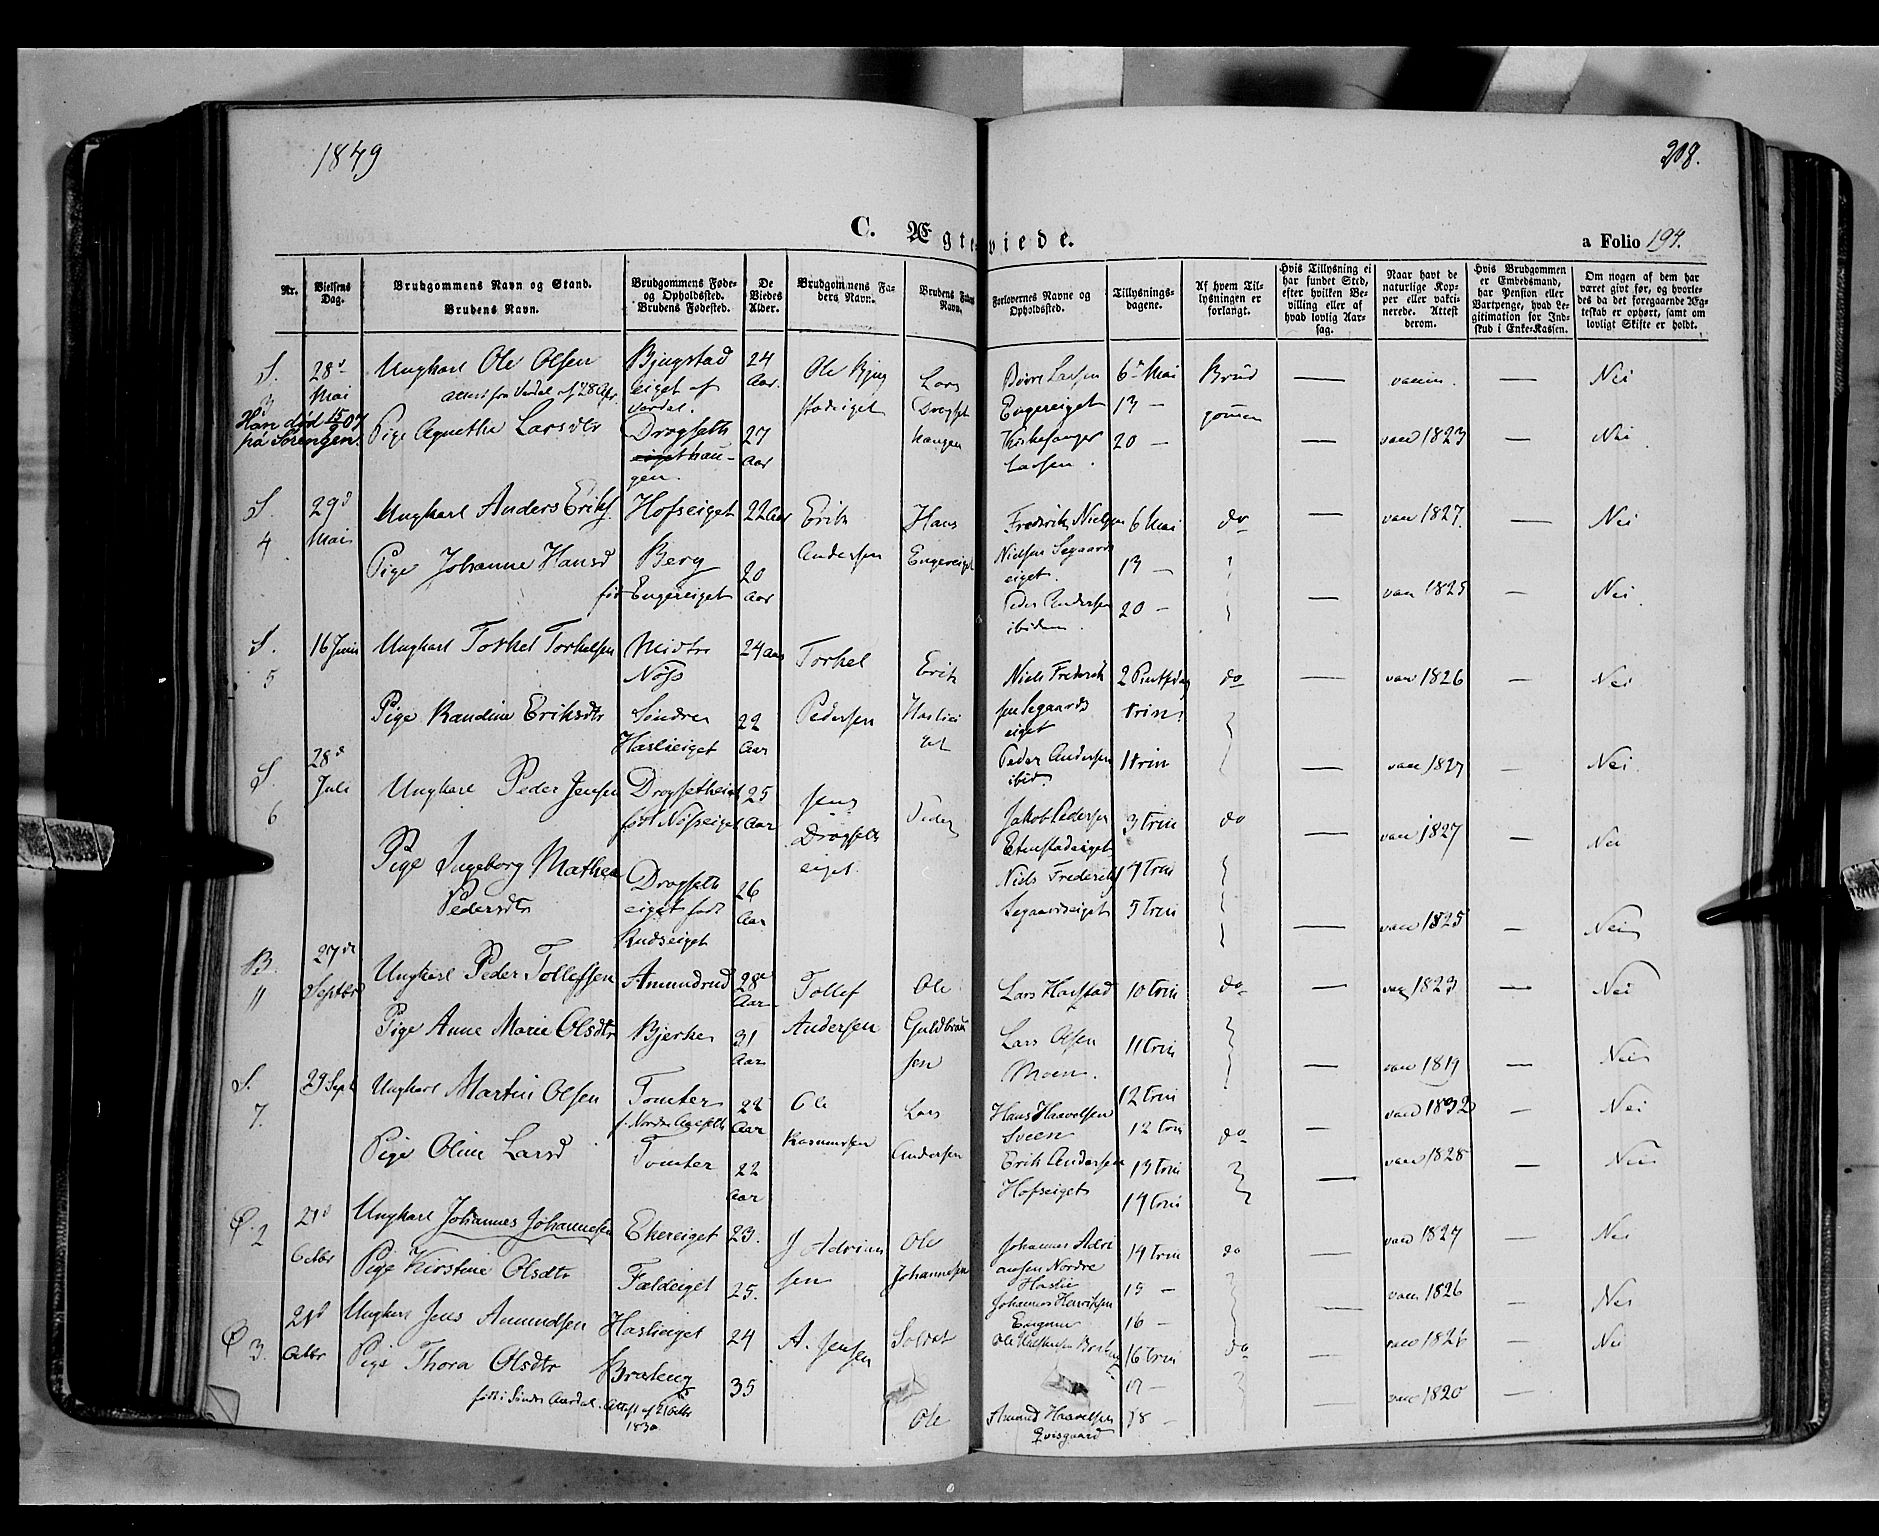 1849
208.
C. Ægteviede.
a Folio 194.
Nr.
Vielsens Dag.
Brudgommens Navn og Stand.
Brudens Navn.
Brudgommens Føde- og Opholdssted.
Brudens Fødested.
De Viedes Alder.
Brudgommens Faders Navn.
Brudens Faders Navn.
Forlovernes Navne og Opholdssted.
Tillysningsdagene.
Af hvem Tillysningen er forlangt.
Hvis Tillysning ei har fundet Sted, efter hvilken Bevilling eller af hvad lovlig Aarsag.
Naar havt de naturlige Kopper eller vaccinerede. Attest derom.
Hvis Brudgommen er Embedsmand, har Pension eller Vartpenge, hvad Legitimation for Indskud i Enke-Kassen.
Om nogen af dem har været givt før, og hvorledes da det foregaaende Ægteskab er ophørt, samt om lovligt Skifte er holdt.
S. 3 28d Mai Ungkarl Ole Olsen Bjugstad eiget af Vardal. 24 Aar. Ole Bjugstadeiget Lars Drogsethhaugen Larsen Engereiget 6te Mai 13 — 20 — Brudgomen — vaccin. — Nei
attest fra Vardal af 28 Apr.
Han død 15/2 07 på Sørengen.
Pige Agnethe Larsdtr Drogseth haugen. 27 Aar Kirkesanger Larsen. — vacc 1823 — Nei
S. 4 29d Mai Ungkarl Anders Eriks. Hofseiget 22 Aar Erik Andersen Hans Engereiget Frederik Nielsen Nielsen Segaardseiget. 6 Mai 13 — 20 — do — vacc 1827. — Nei
Pige Johanne Hansd Berg født Engereiget 20 Aar Peder Andersen ibidem. — vacc 1825 — Nei.
S. 5 16 Juni Ungkarl Torkel Torkelsen Midtre Nøss 24 Aar Torkel Pedersen Erik Haslieiget Niels Frederiksen Segaardseiget 2 Pintsdag trin: do — vacc 1826 — Nei
Pige Randine Eriksdtr Søndre Haslieiget 22 Aar Peder Andersen ibid. 1 trin — vacc 1827 — Nei
S. 6 28d Juli Ungkarl Peder Jensen Drogsetheiet født Nøsseiget 25 Aar Jens Drogsetheiget. Peder Jakob Pedersen 3 trin do — vacc 1827 — Nei
Pige Ingeborg Mathea Pedersdtr Drogsetheiget født Rudseiget 26 Aar Niels Frederiks Segaardseiget 4 trin 5 trin — vacc 1825 — Nei
B. 11 27de Septbr Ungkarl Peder Tollefsen Amundrud 28 Aar Tollef Andersen Ole Guldbransen Lars Harstad 10 trin do — vacc 1823 — Nei
Pige Anne Marie Olsdtr Bjerke 31 Aar Lars Olsen Moen. 11 trin 12 trin — vacc 1819 — Nei
S. 7. 29 Sept Ungkarl Martin Olsen Tomter 22 Aar Ole Rasmussen Lars Andersen Hans Haavelsen Sveen 12 trin do — vacc 1832 — Nei
Pige Oline Larsd Tomter 22 Aar Erik Andersen Hofseiget 13 trin 14 trin — vacc 1828 — Nei
Ø. 2 21d Octbr Ungkarl Johannes Johannesen Ekereiget 23. J Adriansen Ole Johannesen Johannes Adriansen Nordre Haslie 14 trin do — vacc 1827 — Nei
Pige Kirstine Olsdtr Fældeiget 25. Johannes Henriksen 15 — 16 — — vacc 1826 — Nei
Ø 3. 21d Octbr Ungkarl Jens Amundsen Haslieiget 24 A. Jensen Soldat Ole 16 trin do — vacc 1826 — Nei
Pige Thora Olsdtr Brateng 35 Ole Amund Haavelsen Qvisgaard 17 — 18 — — vacc 1820 —
født i Søndre Aurdal. Attest af 21 Octbr 1830.